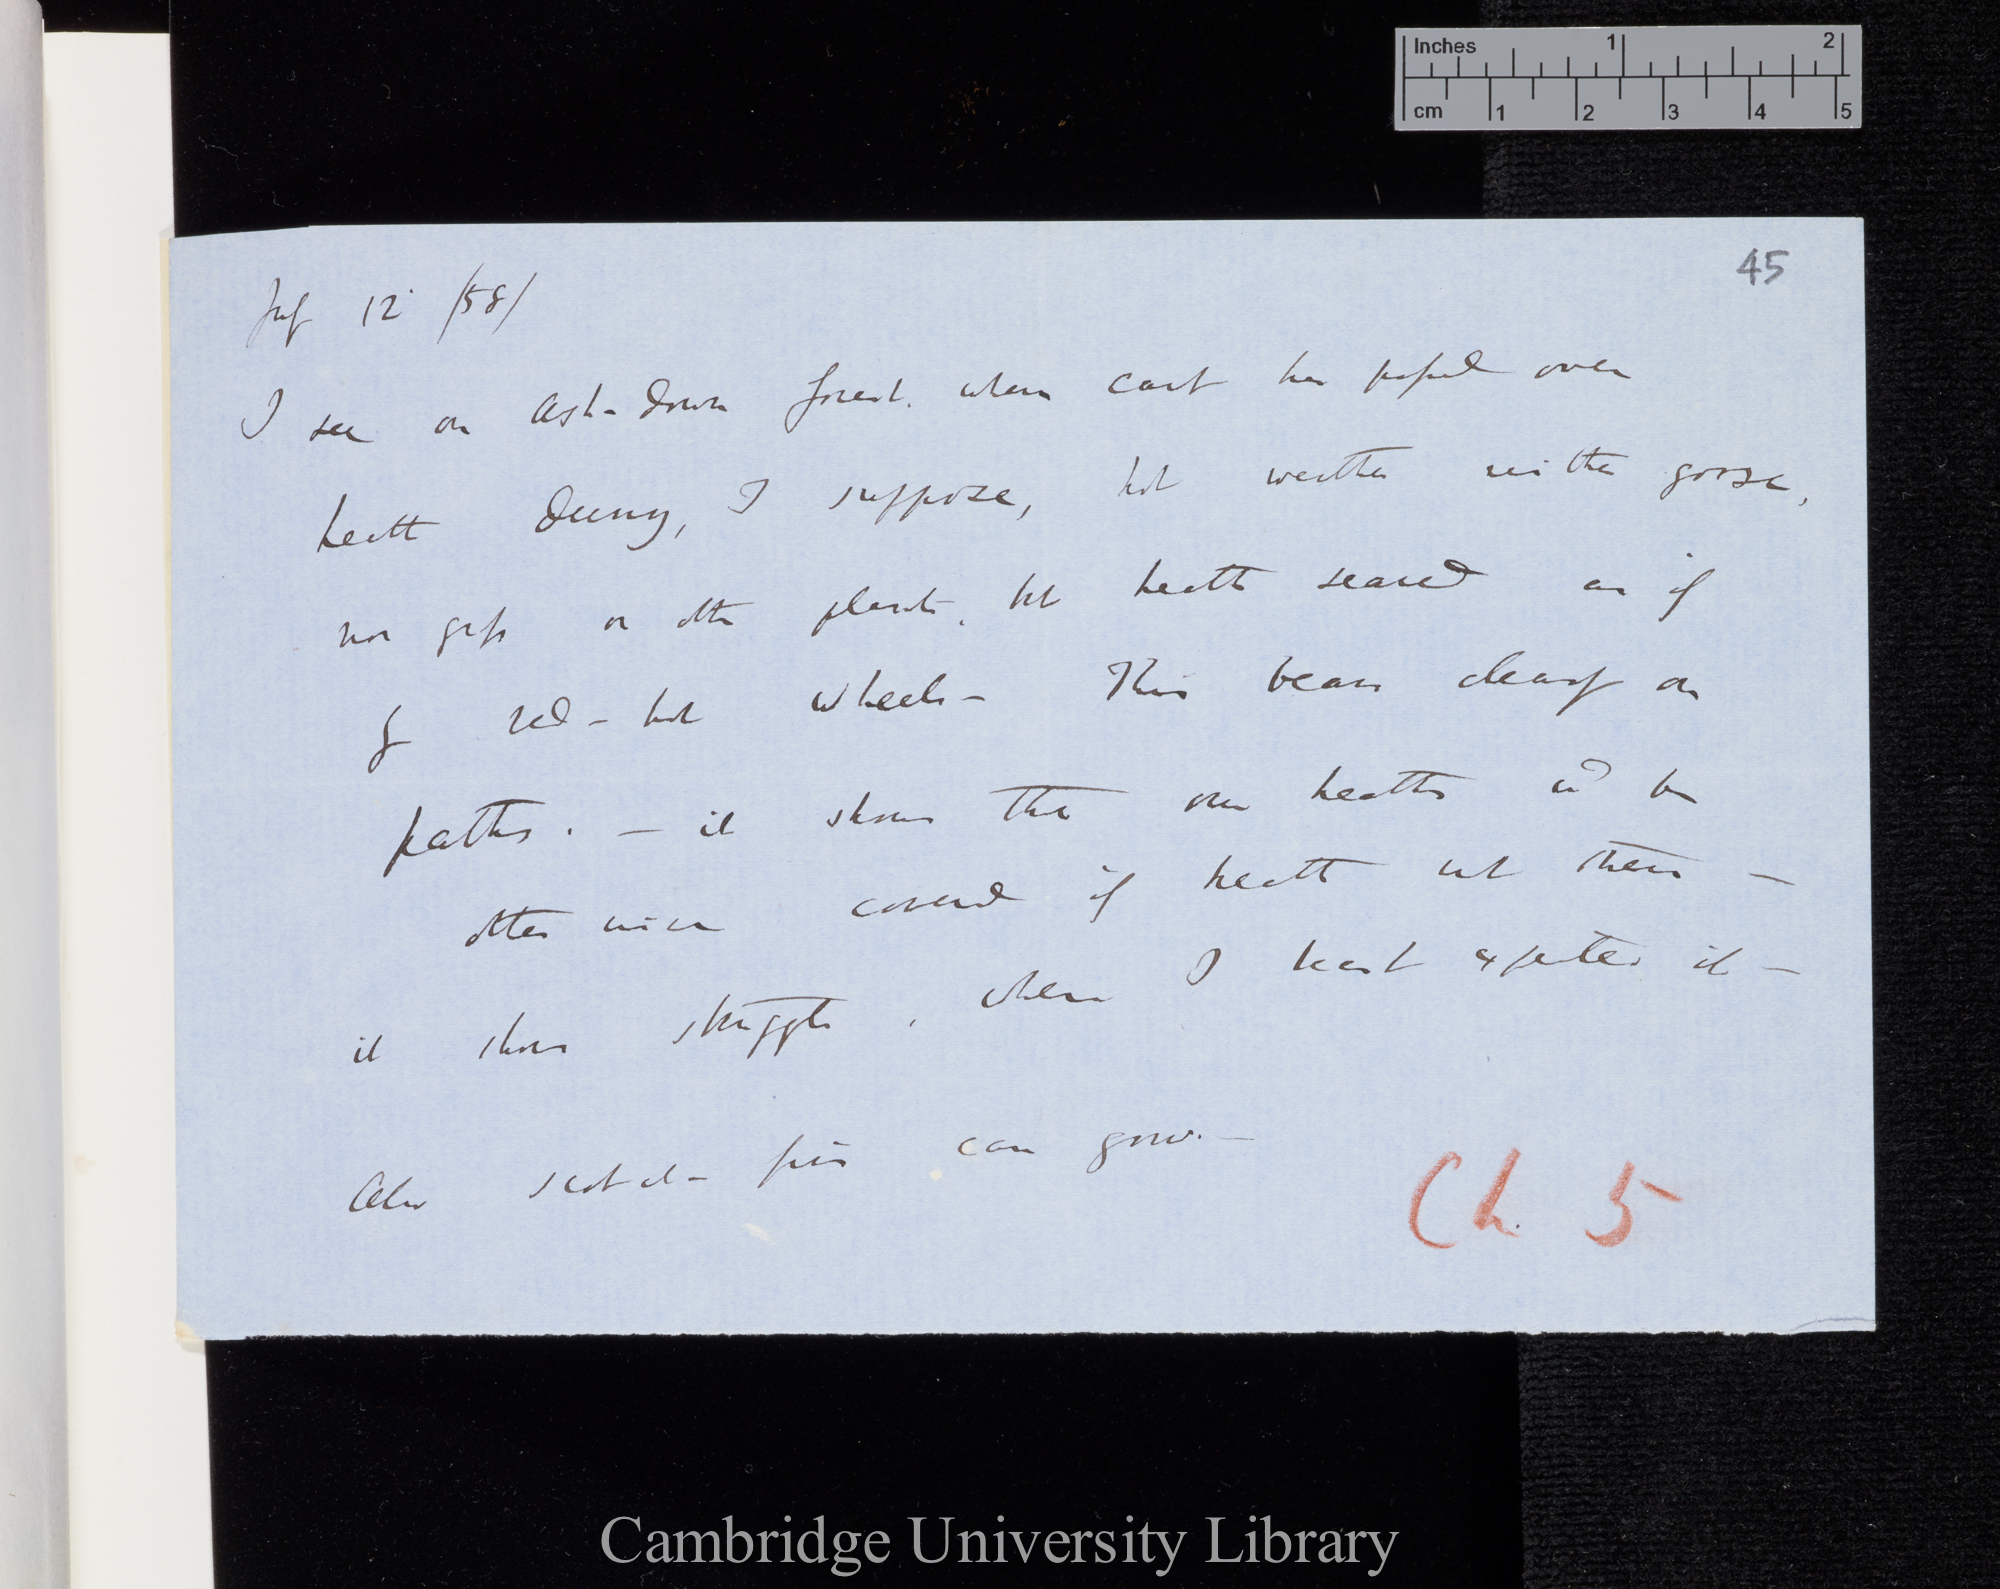 Inches 1 2
cm 1 2 3 4 5
45
July 12 /58/
I see on Ash-down forest. where cart has passed over
heath during, I suppose, hot weather neither gorse,
nor grass or other plants, but heath seared as if
by red-hot wheels – This bears clearly on
paths. – it shows that our heaths wd be
otherwise covered if heath not there –
it shows struggle, where I least expected it –
Also scotch-firs can grow. –
Ch. 5
Cambridge University Library